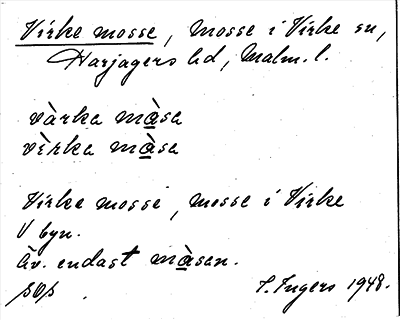 Virke mosse, mosse i Virke sn,
Harjagers hd, Malm. l.
vàrka màsa
vìrka màsa
Virke mosse, mosse i Virke
V byn.
Äv. endast màsen.
I. Ingers 1948.